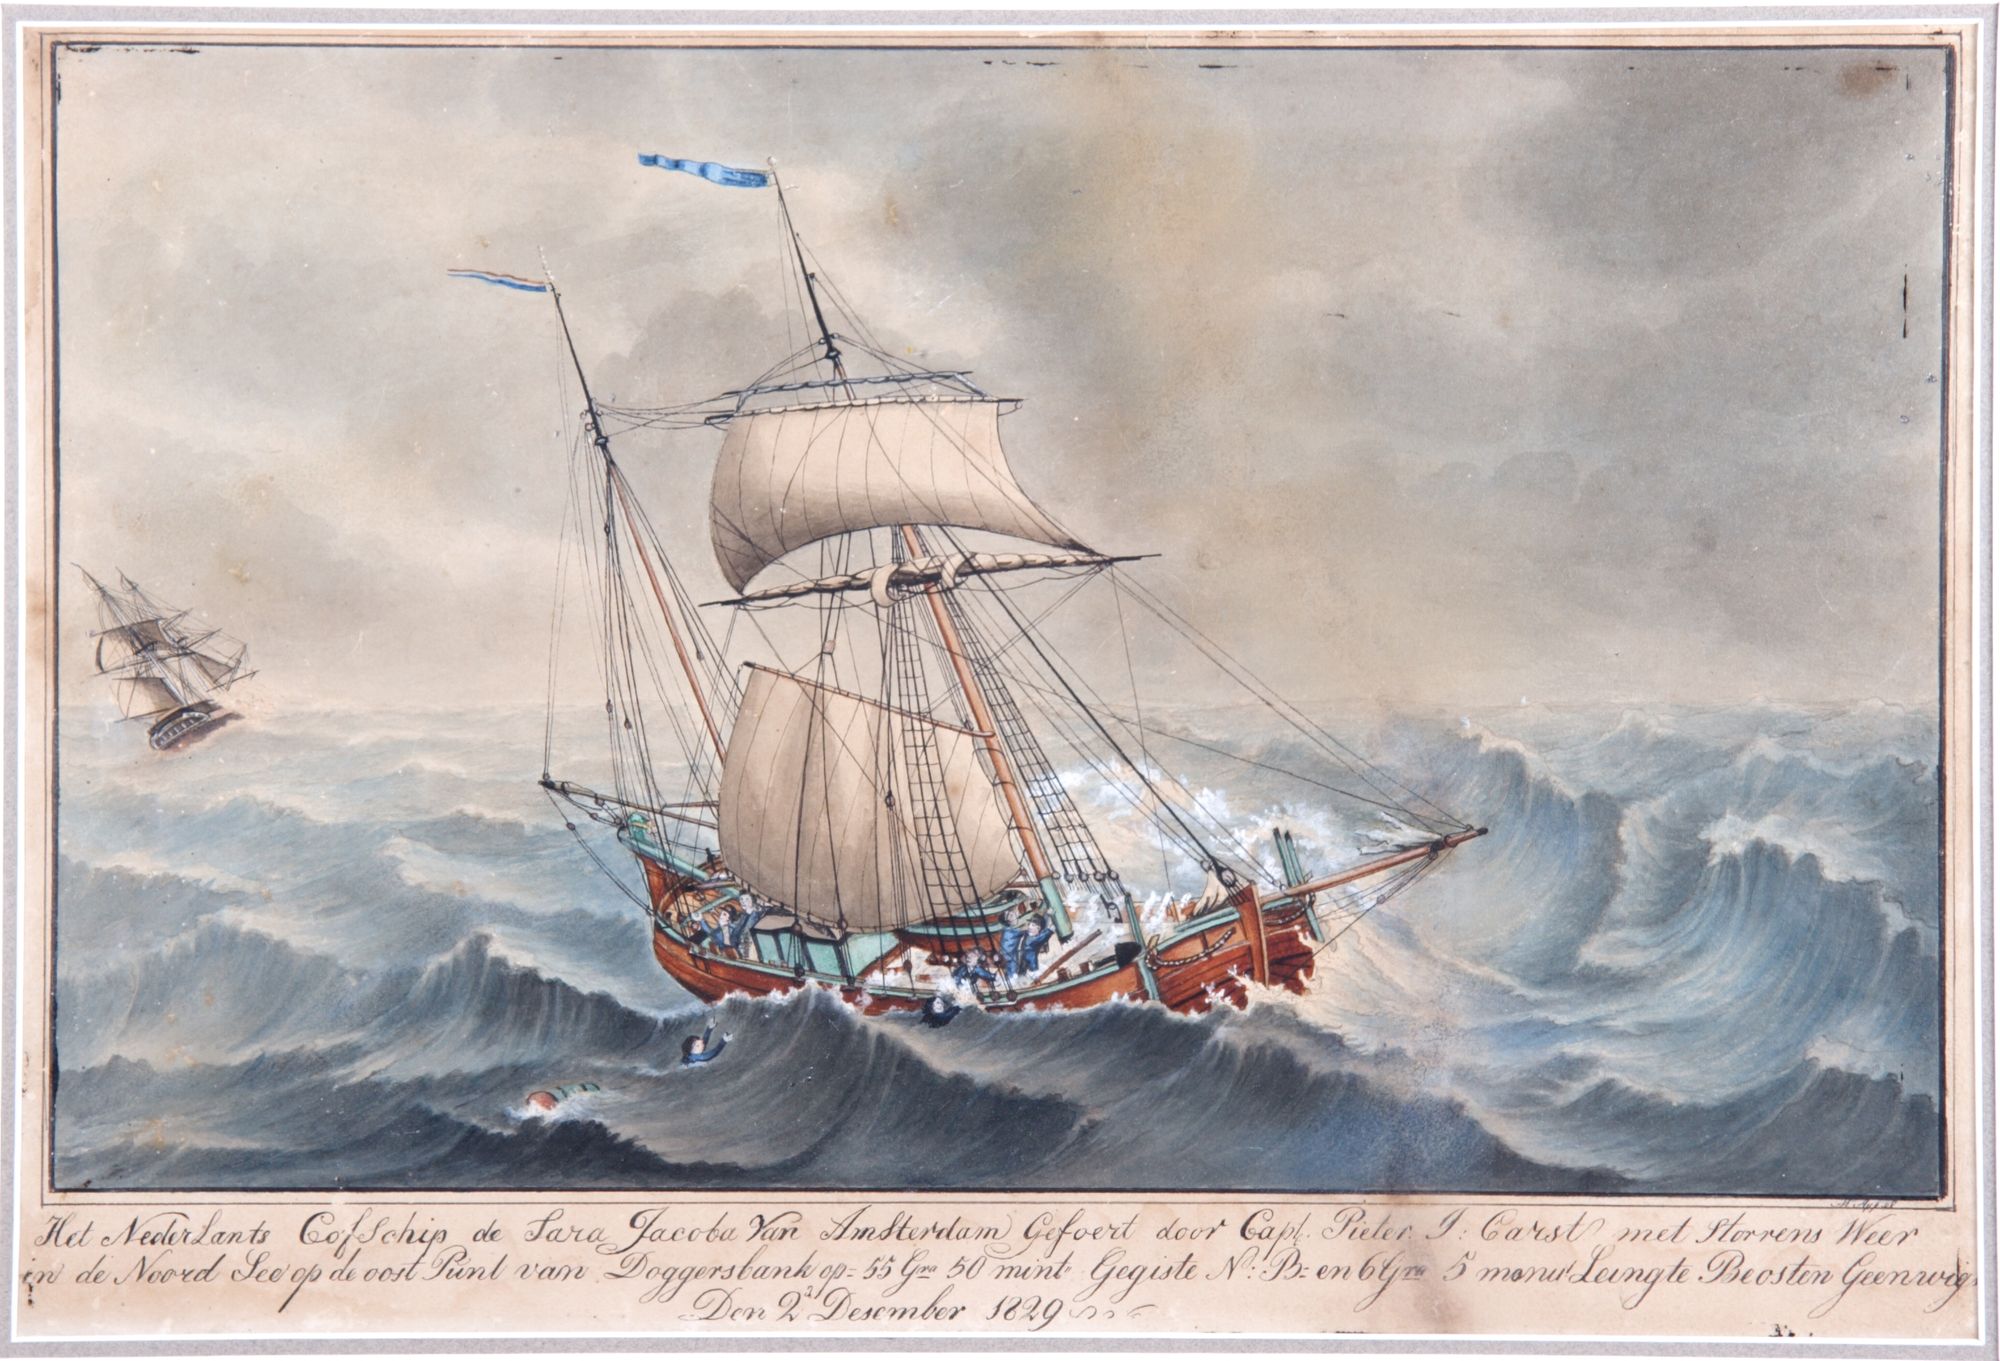 Het NederLants CofSchip de Sara Jacoba Van Amsterdam Gefoert door Capt. Pieter J: Carst met Storrens Weer
in de Noord See op de oost Punt van Doggersbank op= 55 Gra 50 mint Gegiste N: B= en 6 Gra 5 monut Leingte Beosten Geenwig
Den 2 Desember 1829